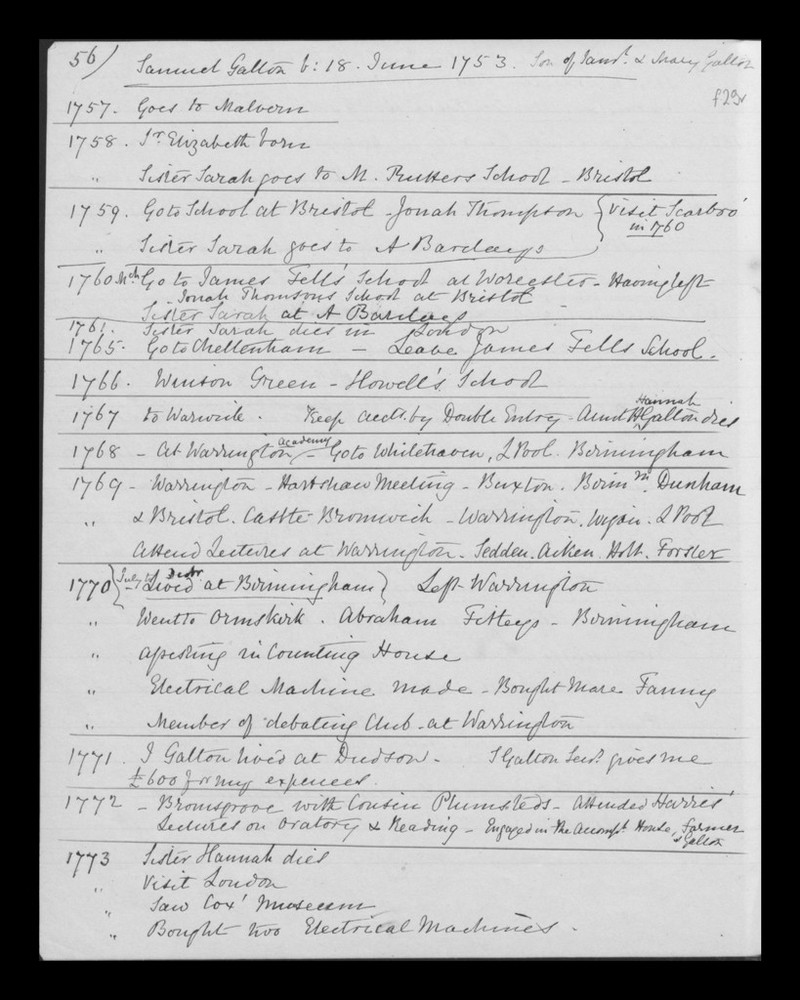 56) Samuel Galton b: 18. June 1753. Son of Saml. & Mary Galton
f29v
1757. Goes to Malvern
1758. Sr Elizabeth born
" Sister Sarah goes to M. Rutters School - Bristol
1759. Go to School at Bristol - Jonah Thompson { Visit Scarboro'
in 1760
" Sister Sarah goes to A Barclays
1760 Mch Go to James Fell's School at Worcester - Having left
Jonah Thomsons School at Bristol
Sister Sarah at A Barclays
1761. Sister Sarah dies in London
1765. Go to Cheltenham - Leave James Fells School.
1766. Winson Green - Howell's School
1767 to Warwick. Keep accts. by Double Entry - Aunt Hannah Galton dies
1768 - At Warrington Academy - Go to Whitehaven, L Pool. Birmingham
1769 - Warrington - Hartshaw Meeting - Buxton. Birm m. Dunham
" & Bristol. Castle Bromwich - Warrington. Wigan. L Pool
Attend Lectures at Warrington - Sedden. Aiken. Holt. Forster
1770 { July to Decbr Lived at Birmingham } Left Warrington
" Went to Ormskirk. Abraham - Birmingham
" in Counting House
" Electrical Machine made - Bought Mare Fanny
" Member of debating Club - at Warrington
1771. S Galton lived at Dudson - S Galton Senr. gives me
£600 for my expences.
1772 - Bromsgrove with Cousin Plumsteds - Attended Harris'
Lectures on Oratory & Reading - Engaged in the Accompt. House, Farmer
& Galton
1773 Sister Hannah dies
" Visit London
" Saw Cox' Museum
" Bought two Electrical Machines.